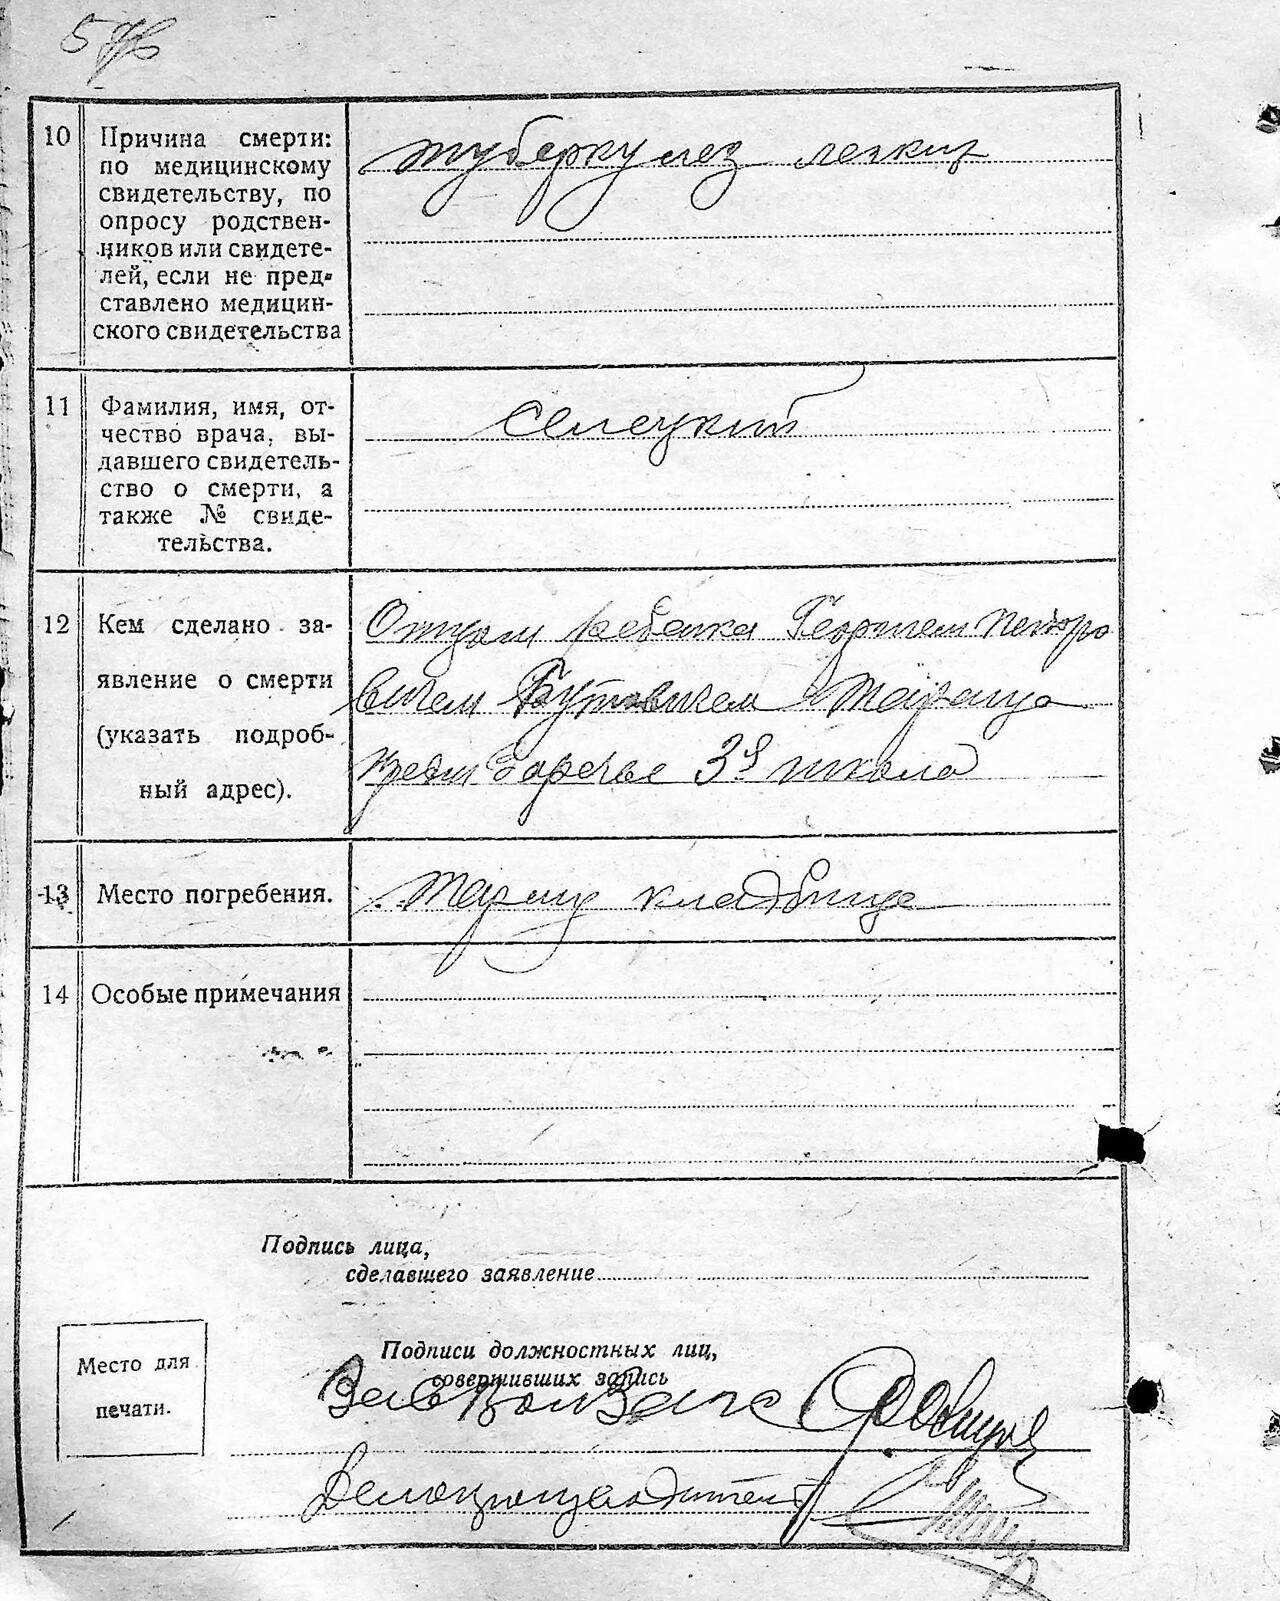 10
Причина смерти:
по медицинскому
свидетельству, по
опросу родствен-
ников или свидете-
лей, если не пред-
ставлено медицин-
ского свидетельства
туберкулез легких
11
Фамилия, имя, от-
чество врача, вы-
давшего свидетель-
ство о смерти, а
также № свиде-
тельства.
Селецкий
12
Кем сделано за-
явление о смерти
(указать подроб-
ный адрес).
Отцом ребенка Георгием Петро
вичем Бутовичем
Заречье 3я школа
13
Место погребения.
кладбище
14
Особые примечания
Подпись лица,
сделавшего заявление
Место для
печати.
Подписи должностных лиц,
совершивших запись
Делопроизводитель